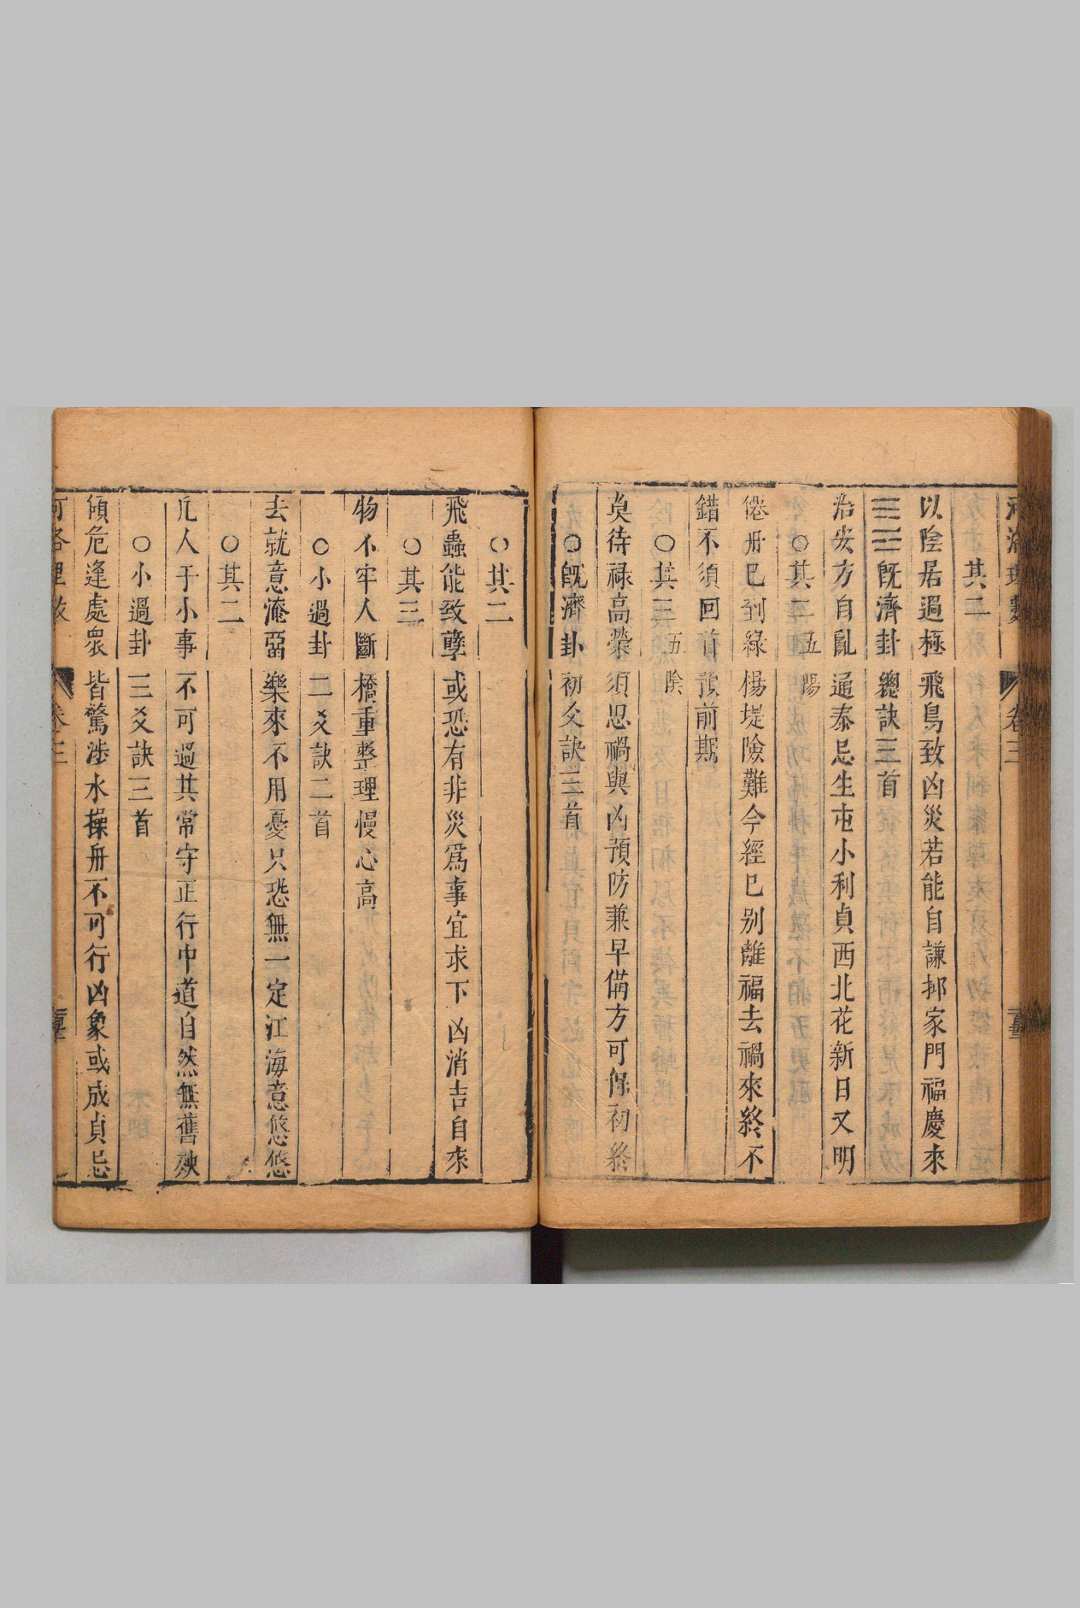 其二
以陰居過極 飛鳥致凶災若能自謙抑家門福慶來
䷾既濟卦 總訣三首
治安方自亂 通泰忌生屯小利貞西北花新日又明
○其二 五陽
倦舟已到綠 楊堤險難今經已別離福去禍來終不
錯不須回首 預前期
○其三 五陰
莫待祿高榮 須思禍與凶預防兼早備方可保初終
○既濟卦 初爻訣三首
○其二
飛蟲能致孽 或恐有非災爲事宜求下凶消吉自來
○其三
物不牢人斷 橋重整理慢心高
○小過卦 二爻訣二首
去就意淹留 樂來不用憂只恐無一定江海意悠悠
○其二
凡人于小事 不可過其常守正行中道自然無舊殃
○小過卦 三爻訣三首
傾危逢處衆 皆驚涉水操舟不可行凶象或成貞忌